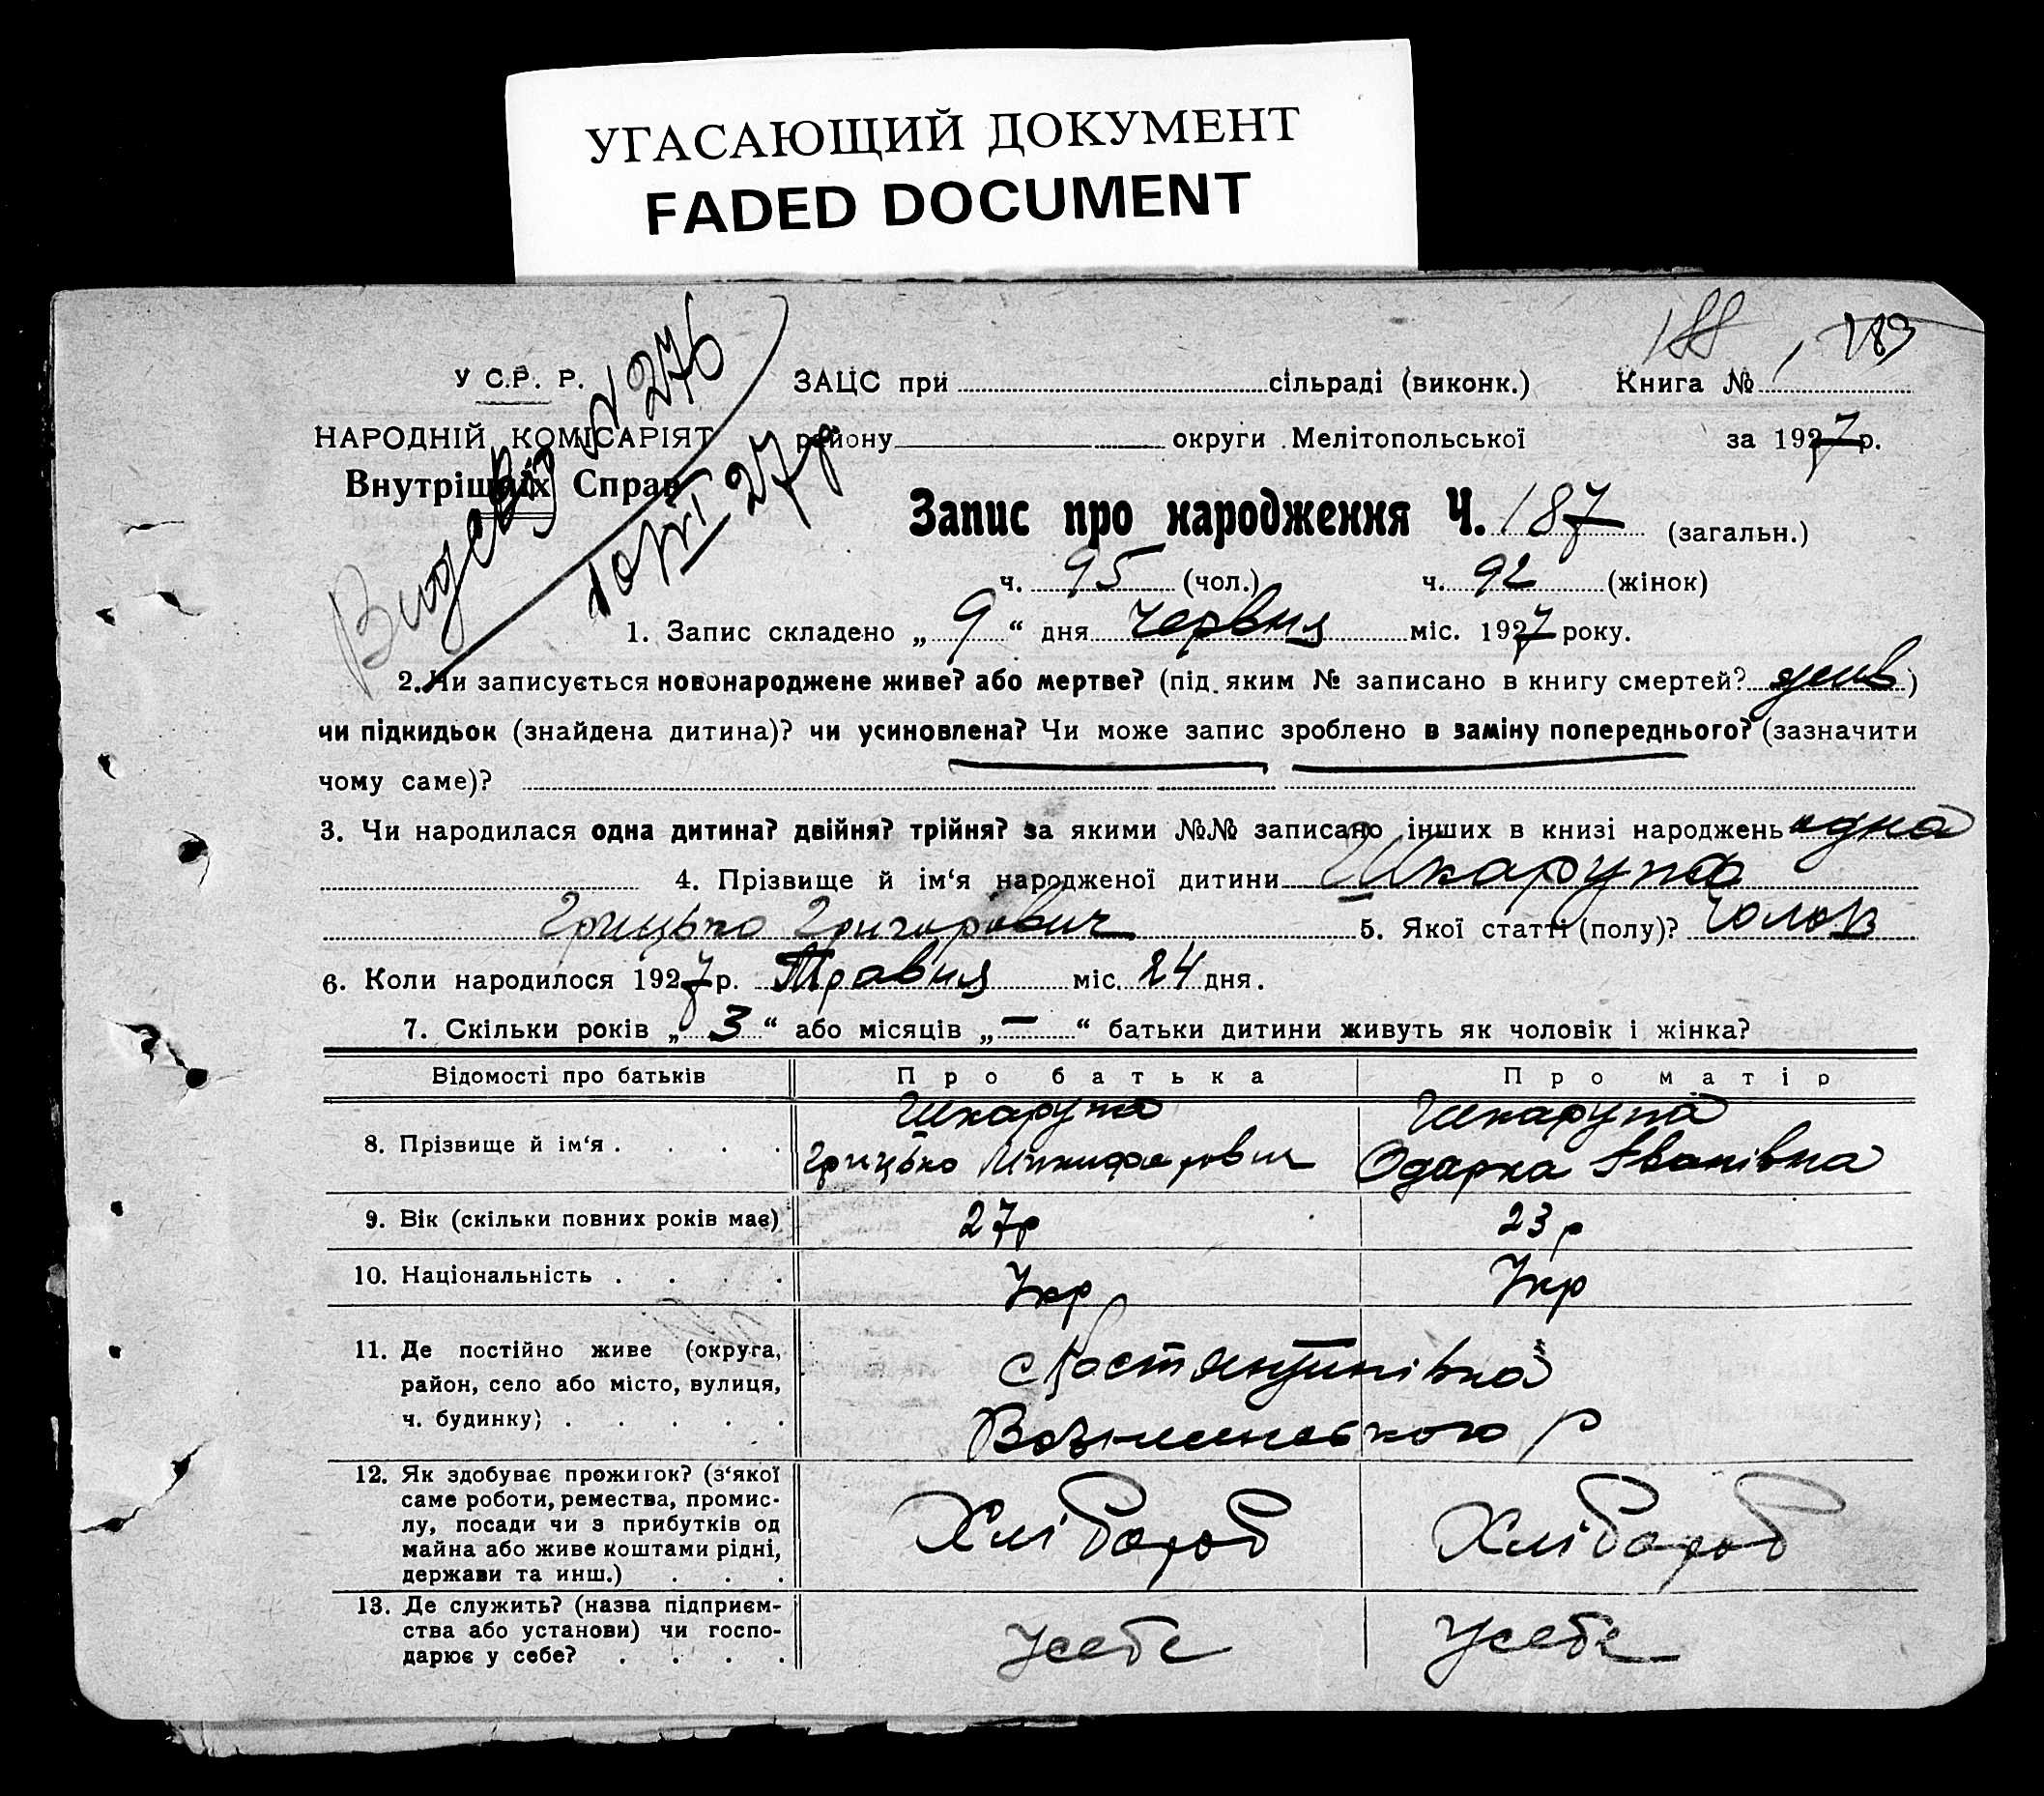 УГАСАЮЩИЙ ДОКУМЕНТ
FADED DOCUMENT
188 189
У С.Р. Р. ЗАЦС при сільраді (виконк.) Книга №
НАРОДНІЙ КОМІСАРІЯТ району округи Мелітопольської за 1927 р.
Внутрішніх Справ
№ 276
27 р
Запис про народження Ч. 187 (загальн.)
ч. 95 (чол.) ч. 92 (жінок)
1. Запис складено „ 9 “ дня червня міс. 1927 року.
2. Чи записується новонароджене живе? або мертве? (під яким № записано в книгу смертей? жив)
чи підкидьок (знайдена дитина)? чи усиновлена? Чи може запис зроблено в заміну попереднього? (зазначити
чому саме)?
3. Чи народилася одна дитина? двійня? трійня? за якими №№ записано інших в книзі народжень одна
4. Прізвище й ім‘я народженої дитини Шкарупа
Грицько Григорович 5. Якої статті (полу)? Чолов
6. Коли народилося 1927 р. Травня міс. 24 дня.
7. Скільки років „ 3 “ або місяців „ — “ батьки дитини живуть як чоловік і жінка?
Відомості про батьків Про батька Про матір
8. Прізвище й ім‘я . . . . Шкарупа Шкарупа
Грицько Никифорович Одарка Іванівна
9. Вік (скільки повних років має) 27р 23р
10. Національність . . . . Укр Укр
11. Де постійно живе (округа,
район, село або місто, вулиця,
ч. будинку) . . . . .
с Костянтинівка
Вознесенського р
12. Як здобуває прожиток? (з‘якої
саме роботи, ремества, промис-
лу, посади чи з прибутків од
майна або живе коштами рідні,
держави та инш.) . . .
Хлібороб Хлібороб
13. Де служить? (назва підприєм-
ства або установи) чи госпо-
дарює у себе? . . . .
Усебе Усебе